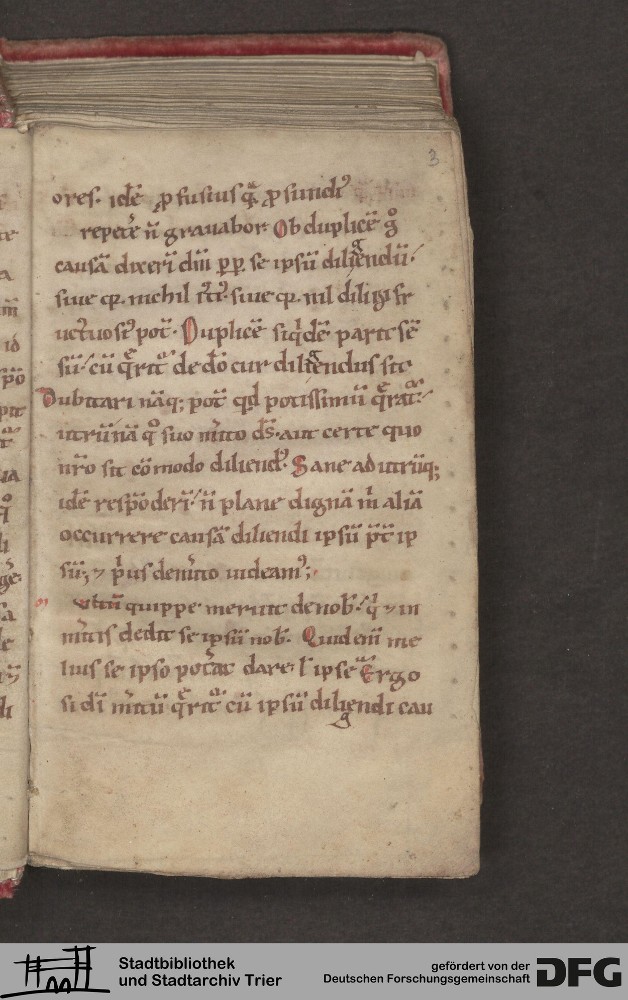 3
ores. idē ꝓfusius q̄ ꝓfundi᷒
repetē n̄ grauabor. Ob duplicē g̊
causā dixerī dm̄ ꝓp̄ se ipsū diligendū.
siue qꝛ nichil
siue qꝛ nil diligi
pot̄. Duplicē siq̇dē parit sē
sū. cū q̄rit᷑ de dō cur diligendus sit
Dubitari nāq; pot̄ qd̄ potissimū q̄rat᷑.
utrūnā q̊ suo mͥito ds̄. aut certe quo
nr̄o sit cōmodo diliend᷒. Sane ad utrūq;
idē respōderī. n̄ plane dignā m̄ aliā
occurrere causā diliendi ipsū p̄t ip
sū; ⁊ pͥus de mͥito uideam᷒;
ultū quippe meruit de nob̄. qͥ ⁊ in
mͥitis dedit se ipsū nob̄. Quid eni̅ me
lius se ipso potͣat dare. ł ipse. Ergo
si dī mͥitū q̄rit᷑ cū ipsū diligendi cau
Stadtbibliothek
und Stadtarchiv Trier
gefördert von der
Deutschen Forschungsgemeinschaft
DFG